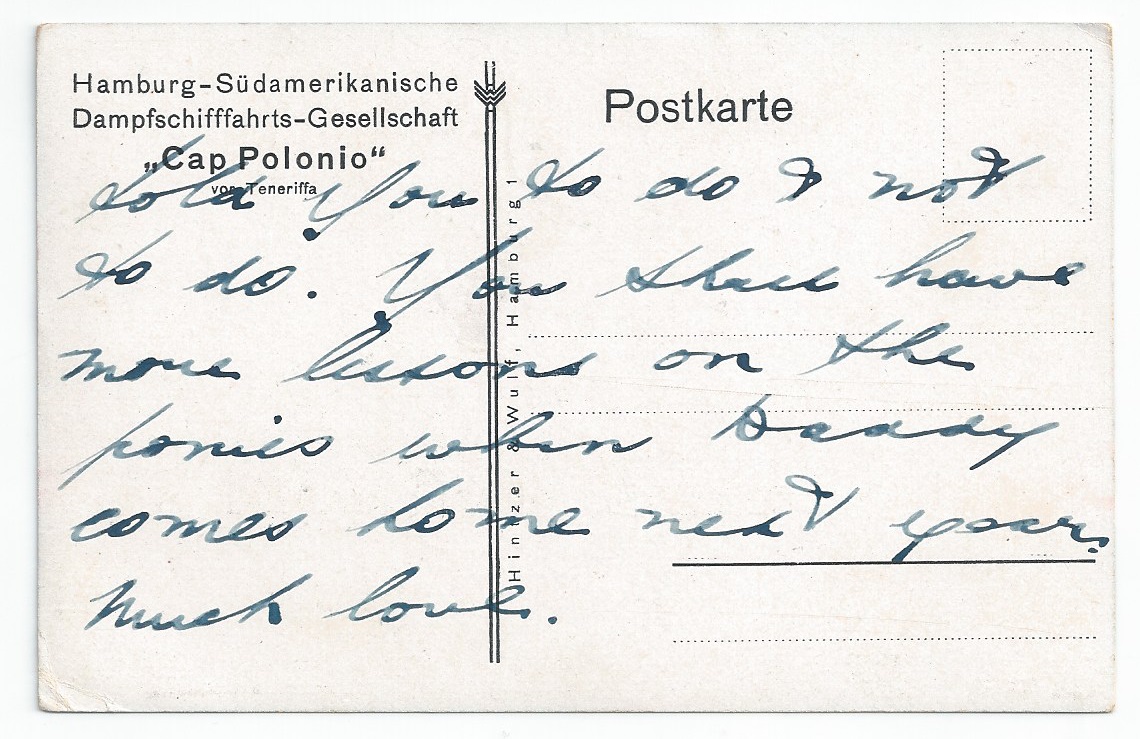 Hamburg-Südamerikanische
Dampfschifffahrts-Gesellschaft
„Cap Polonio“
vor Teneriffa
Postkarte
Hinzer & Wulf, Hamburg 1
told you to do & not
to do. You shall have
more lessons on the
ponies when Daddy
comes home next year.
Much love.